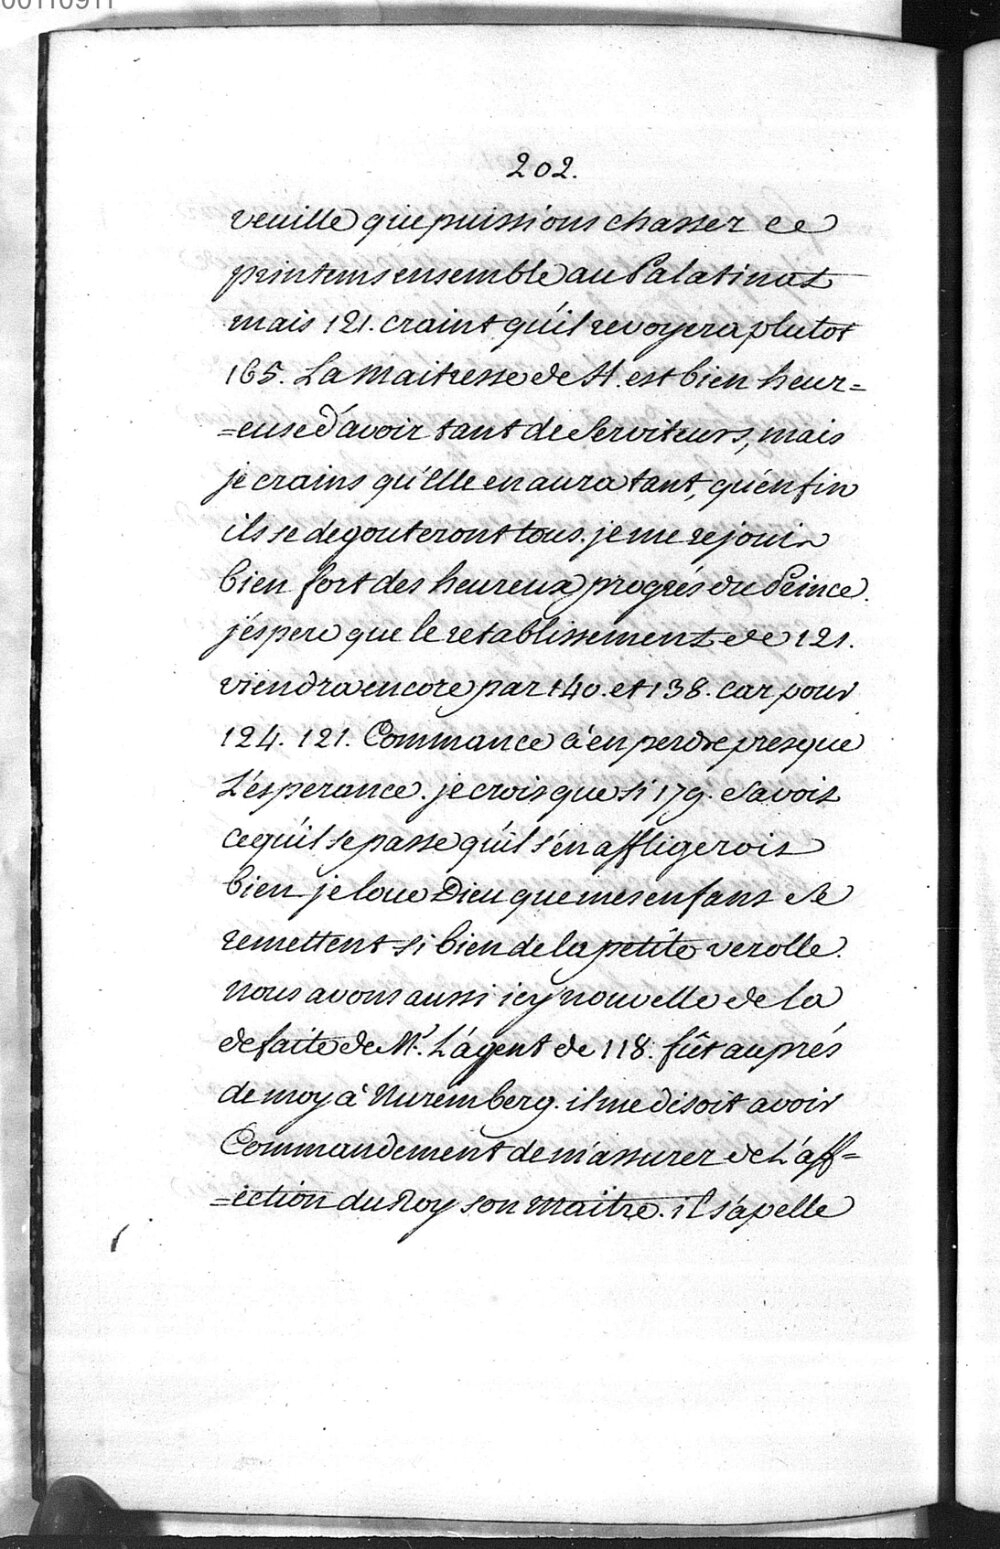 00110911
202.
veuille que puissions chasser ce
printems ensemble au Palatinat
mais 121. craint qu'il revoyera plutot
165. La Maitresse de H. est bien heur=
=euse d'avoir tant de Serviteurs, mais
je crains qu'Elle en aura tant, qu'enfin
ils se degouteront tous. je me rejouis
bien fort des heureux progrés du Prince.
j'éspere que le retablissement de 121.
viendra encore par 140. et 138. car pour
124. 121. Commance à en perdre presque
L'ésperance. je crois que si 179. Savoit
ce qu'il se passe qu'il s'en affligeroit
bien je loue Dieu que mes enfans se
remettent si bien de la petite verolle.
nous avons aussi icy nouvelle de la
defaite de Mr. L'agent de 118. fût auprés
de moy à Nuremberg. il me disoit avoir
Commandement de m'assurer de L'aff=
=ection du Roy son Maitre. il s'apelle